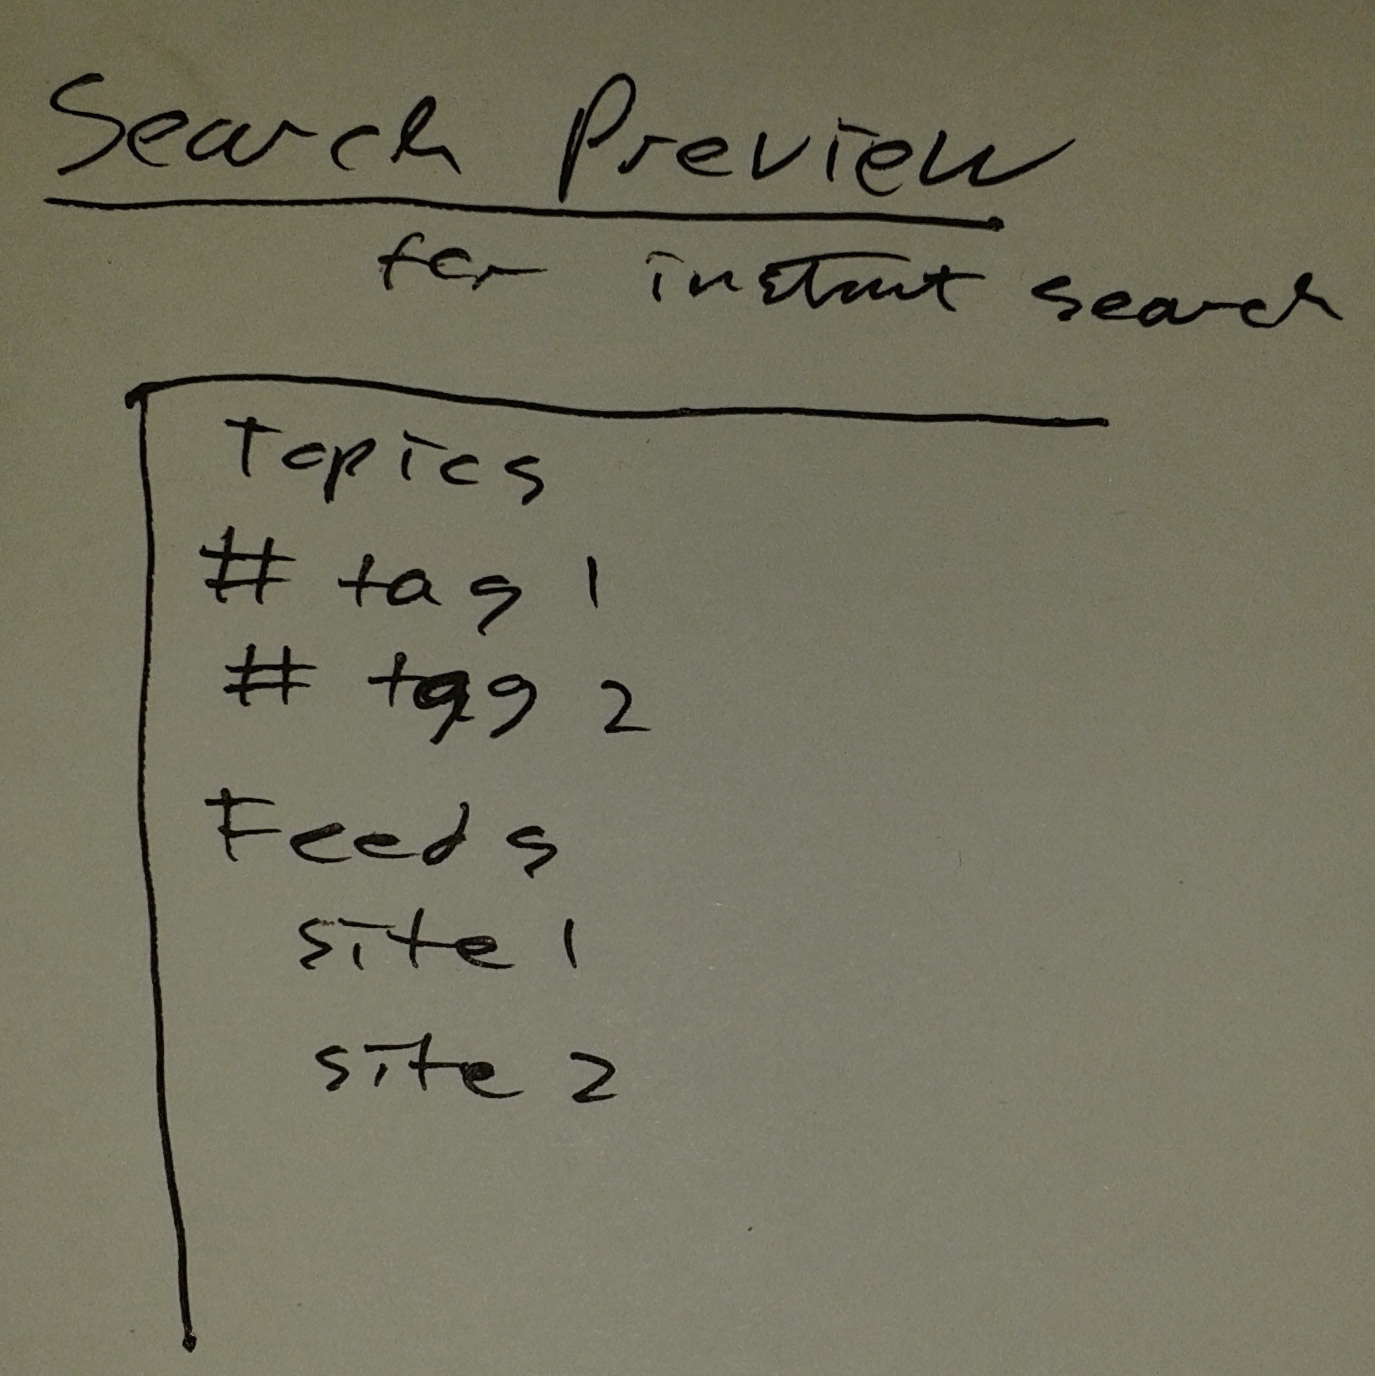 Search Preview
for instant search
Topics
# tag 1
# tag 2
Feeds
site 1
site 2